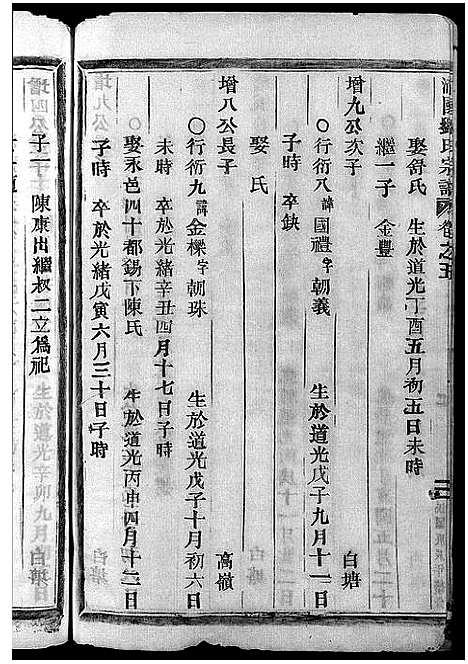 宗譜 卷之五
娶舒氏 生於道光丁酉五月初五日未時
繼一子 金豐
增九公次子 白塘
〇行衍八 諱國禮 字朝義 生於道光戊子九月十一日
子時 卒缺
娶氏
增八公長子 高嶺
〇行衍九 諱金樑 字朝珠 生於道光戊子十月初六日
未時 卒於光緒辛丑四月十七日子時
娶永邑四十都錫下陳氏 生於道光丙申四月十二日
子時 卒於光緒戊寅六月三十日子時
子二 陳康出繼叔二立為祀